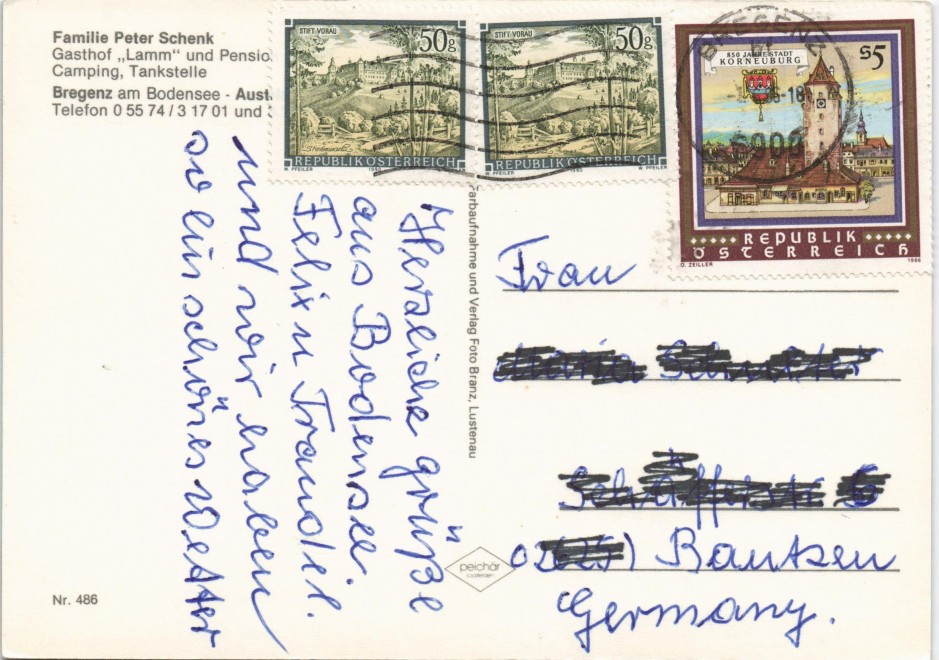 Familie Peter Schenk
Gasthof „Lamm" und Pensio
Camping, Tankstelle
Bregenz am Bodensee - Aust
Telefon 0 55 74 / 3 17 01 und
STIFT·VORAU
50g
REPUBLIK ÖSTERREICH
W. PFEILER
1983
STIFT·VORAU
50g
REPUBLIK ÖSTERREICH
W. PFEILER
1983
850 JAHRE STADT
KORNEUBURG
S5
REPUBLIK
ÖSTERREICH
O. ZEILLER
1986
BREGENZ
-18
Herzliche grüße
aus Bodensee.
Felix u Traudel.
und wir haben
so ein schönes Wetter
Farbaufnahme und Verlag Foto Branz, Lustenau
peichär
Frau
Bautzen
Germany.
Nr. 486